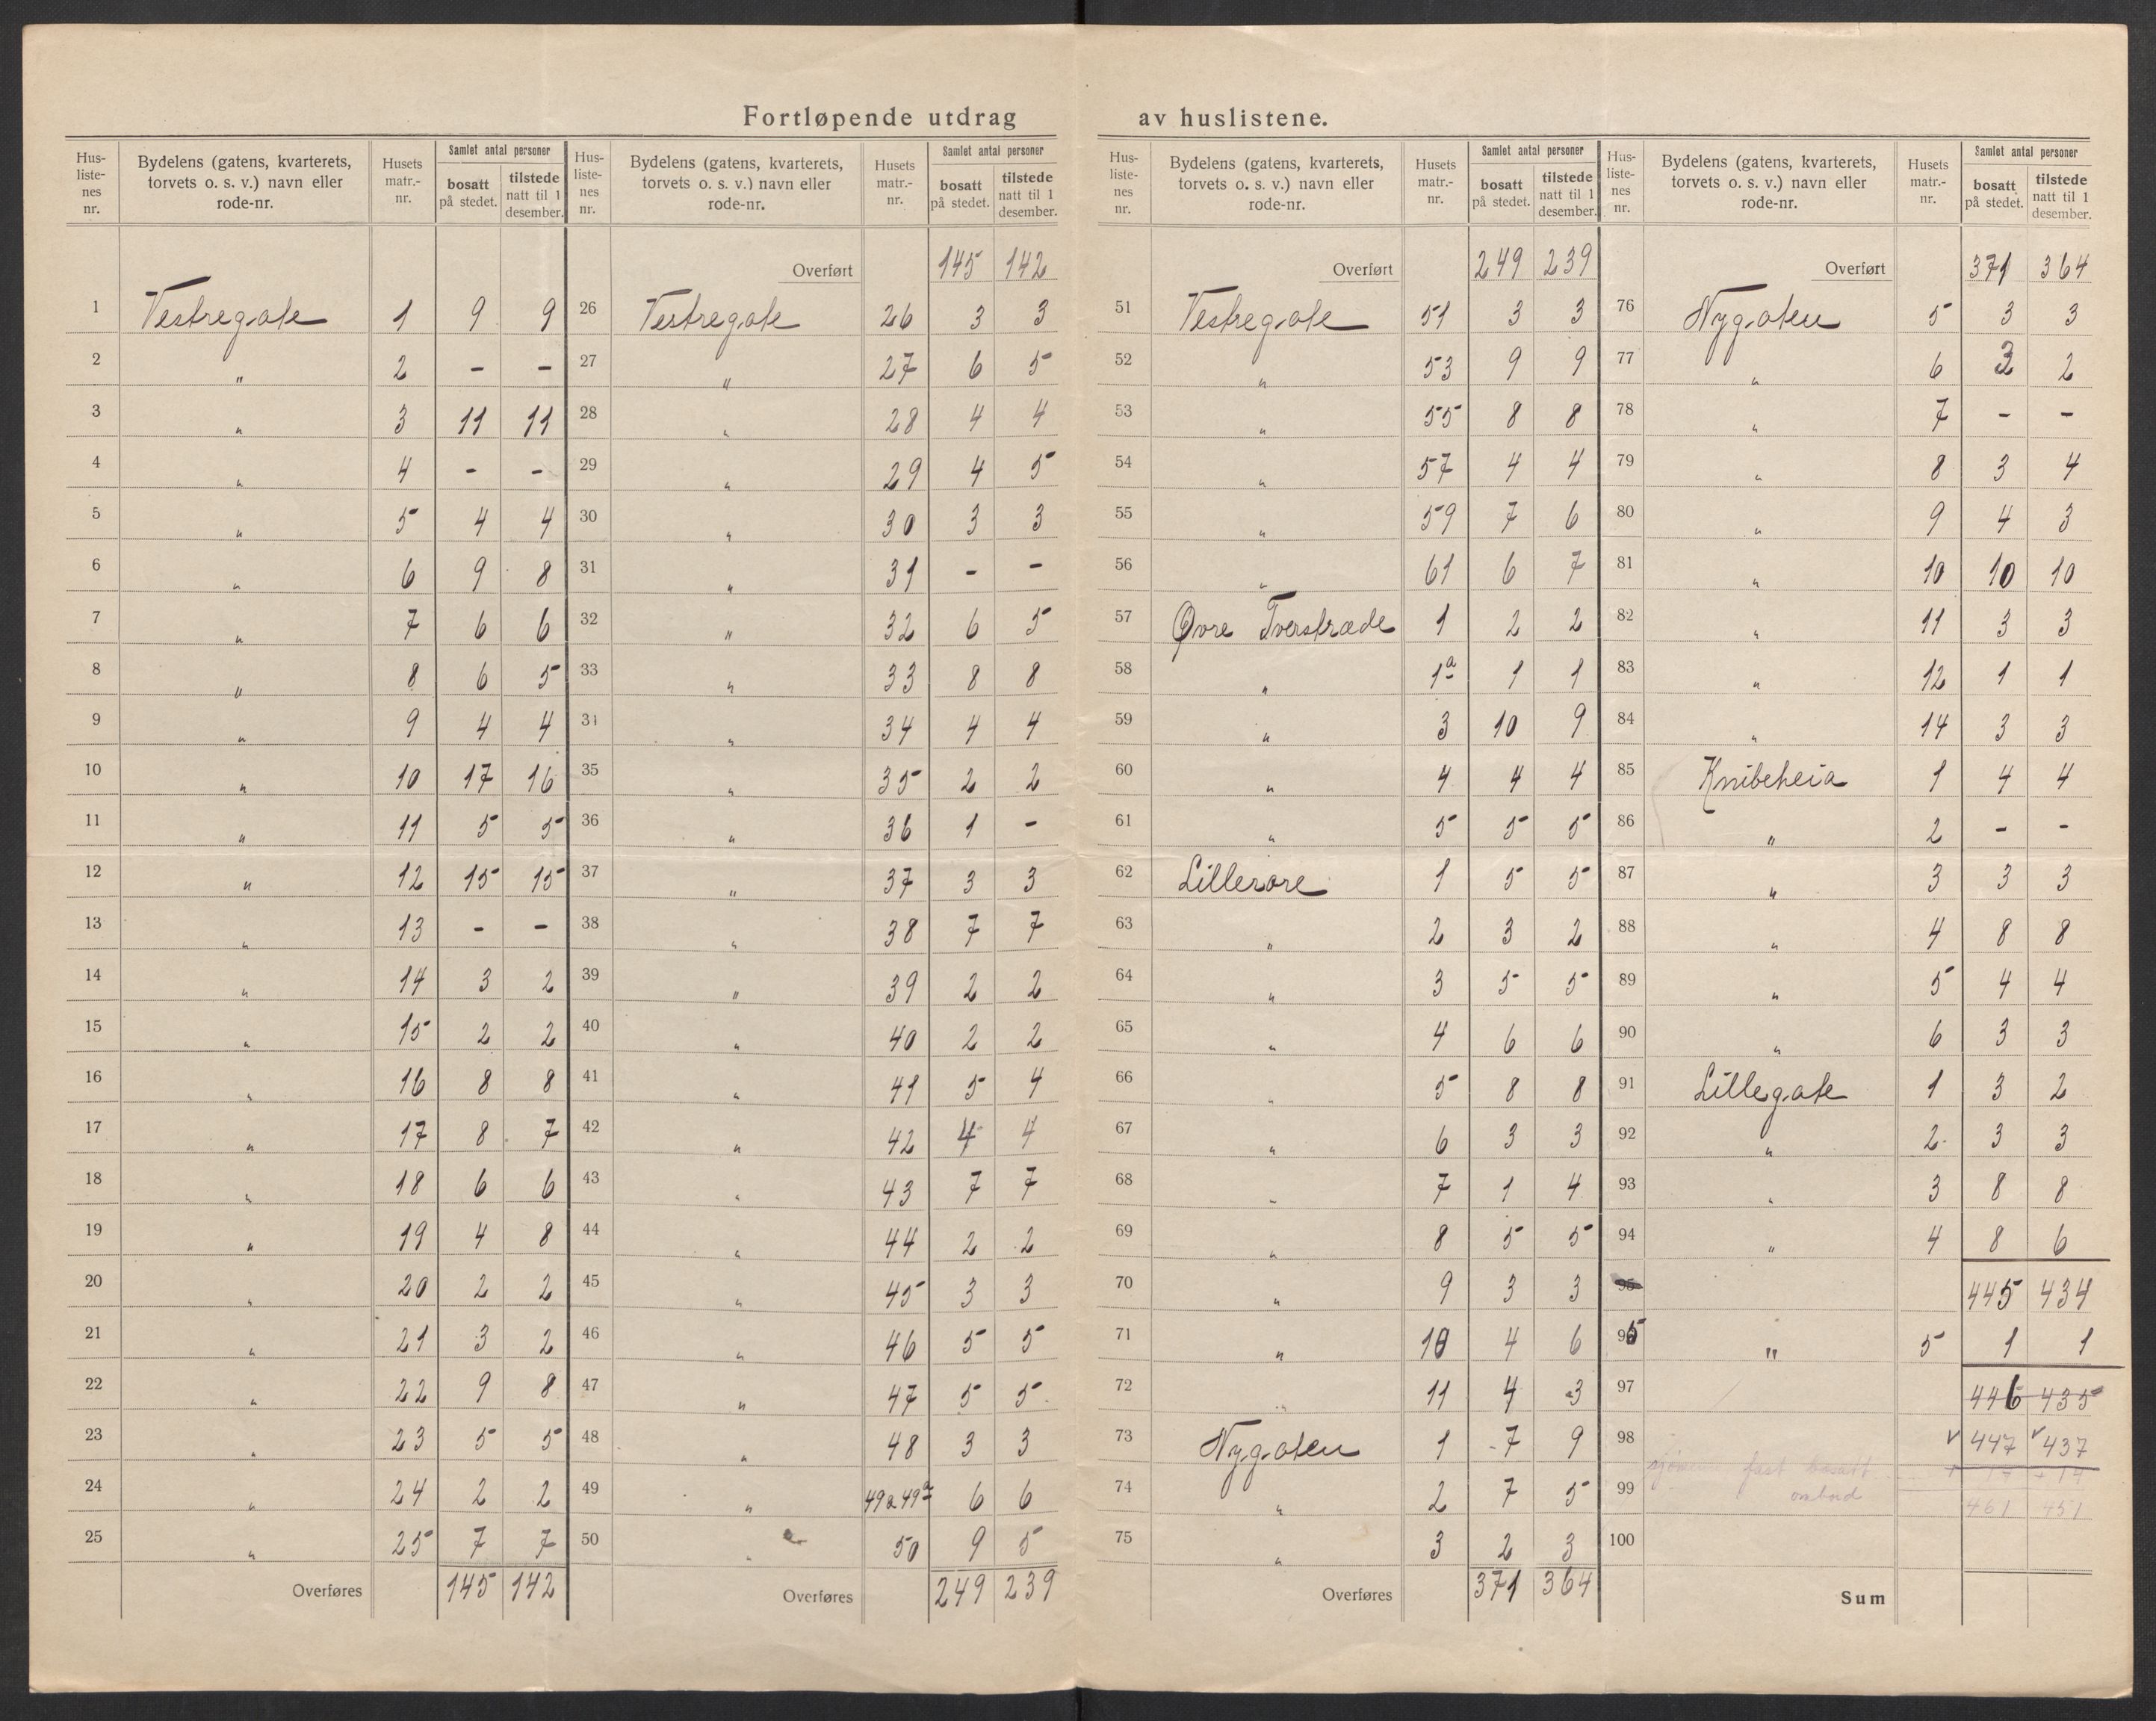 Fortløpende utdrag av huslistene.
Hus-listenes nr. | Bydelens (gatens, kvarterets, torvets o. s. v.) navn eller rode-nr. | Husets matr.-nr. | Samlet antal personer bosatt på stedet. | tilstede natt til 1 desember.
1 Vestregate 1 9 9
2 " 2 - -
3 " 3 11 11
4 " 4 - -
5 " 5 4 4
6 " 6 9 8
7 " 7 6 6
8 " 8 6 5
9 " 9 4 4
10 " 10 17 16
11 " 11 5 5
12 " 12 15 15
13 " 13 - -
14 " 14 3 2
15 " 15 2 2
16 " 16 8 8
17 " 17 8 7
18 " 18 6 6
19 " 19 4 8
20 " 20 2 2
21 " 21 3 2
22 " 22 9 8
23 " 23 5 5
24 " 24 2 2
25 " 25 7 7
Overføres 145 142
Hus-listenes nr. | Bydelens (gatens, kvarterets, torvets o. s. v.) navn eller rode-nr. | Husets matr.-nr. | Samlet antal personer bosatt på stedet. | tilstede natt til 1 desember.
Overført 145 142
26 Vestregate 26 3 3
27 " 27 6 5
28 " 28 4 4
29 " 29 4 5
30 " 30 3 3
31 " 31 - -
32 " 32 6 5
33 " 33 8 8
34 " 34 4 4
35 " 35 2 2
36 " 36 1 -
37 " 37 3 3
38 " 38 7 7
39 " 39 2 2
40 " 40 2 2
41 " 41 5 4
42 " 42 4 4
43 " 43 7 7
44 " 44 2 2
45 " 45 3 3
46 " 46 5 5
47 " 47 5 5
48 " 48 3 3
49 " 49 & 49a 6 6
50 " 50 9 5
Overføres 249 239
Hus-listenes nr. | Bydelens (gatens, kvarterets, torvets o. s. v.) navn eller rode-nr. | Husets matr.-nr. | Samlet antal personer bosatt på stedet. | tilstede natt til 1 desember.
Overført 249 239
51 Vestregate 51 3 3
52 " 53 9 9
53 " 55 8 8
54 " 57 4 4
55 " 59 7 6
56 " 61 6 7
57 Øvre Tverstræde 1 2 2
58 " 1a 1 1
59 " 3 10 9
60 " 4 4 4
61 " 5 5 5
62 Lillerøre 1 5 5
63 " 2 3 2
64 " 3 5 5
65 " 4 6 6
66 " 5 8 8
67 " 6 3 3
68 " 7 1 4
69 " 8 5 5
70 " 9 3 3
71 " 10 4 6
72 " 11 4 3
73 Nygaten 1 7 9
74 " 2 7 5
75 " 3 2 3
Overføres 371 364
Hus-listenes nr. | Bydelens (gatens, kvarterets, torvets o. s. v.) navn eller rode-nr. | Husets matr.-nr. | Samlet antal personer bosatt på stedet. | tilstede natt til 1 desember.
Overført 371 364
76 Nygaten 5 3 3
77 " 6 3 2
78 " 7 - -
79 " 8 3 4
80 " 9 4 3
81 " 10 10 10
82 " 11 3 3
83 " 12 1 1
84 " 14 3 3
85 Knibeheia 1 4 4
86 " 2 - -
87 " 3 3 3
88 " 4 8 8
89 " 5 4 4
90 " 6 3 3
91 Lillegate 1 3 2
92 " 2 3 3
93 " 3 8 8
94 " 4 8 6
95 445 434
95 " 5 1 1
97 446 435
98 447 437
fast bosatt
99 ombord 461 451
100
Sum